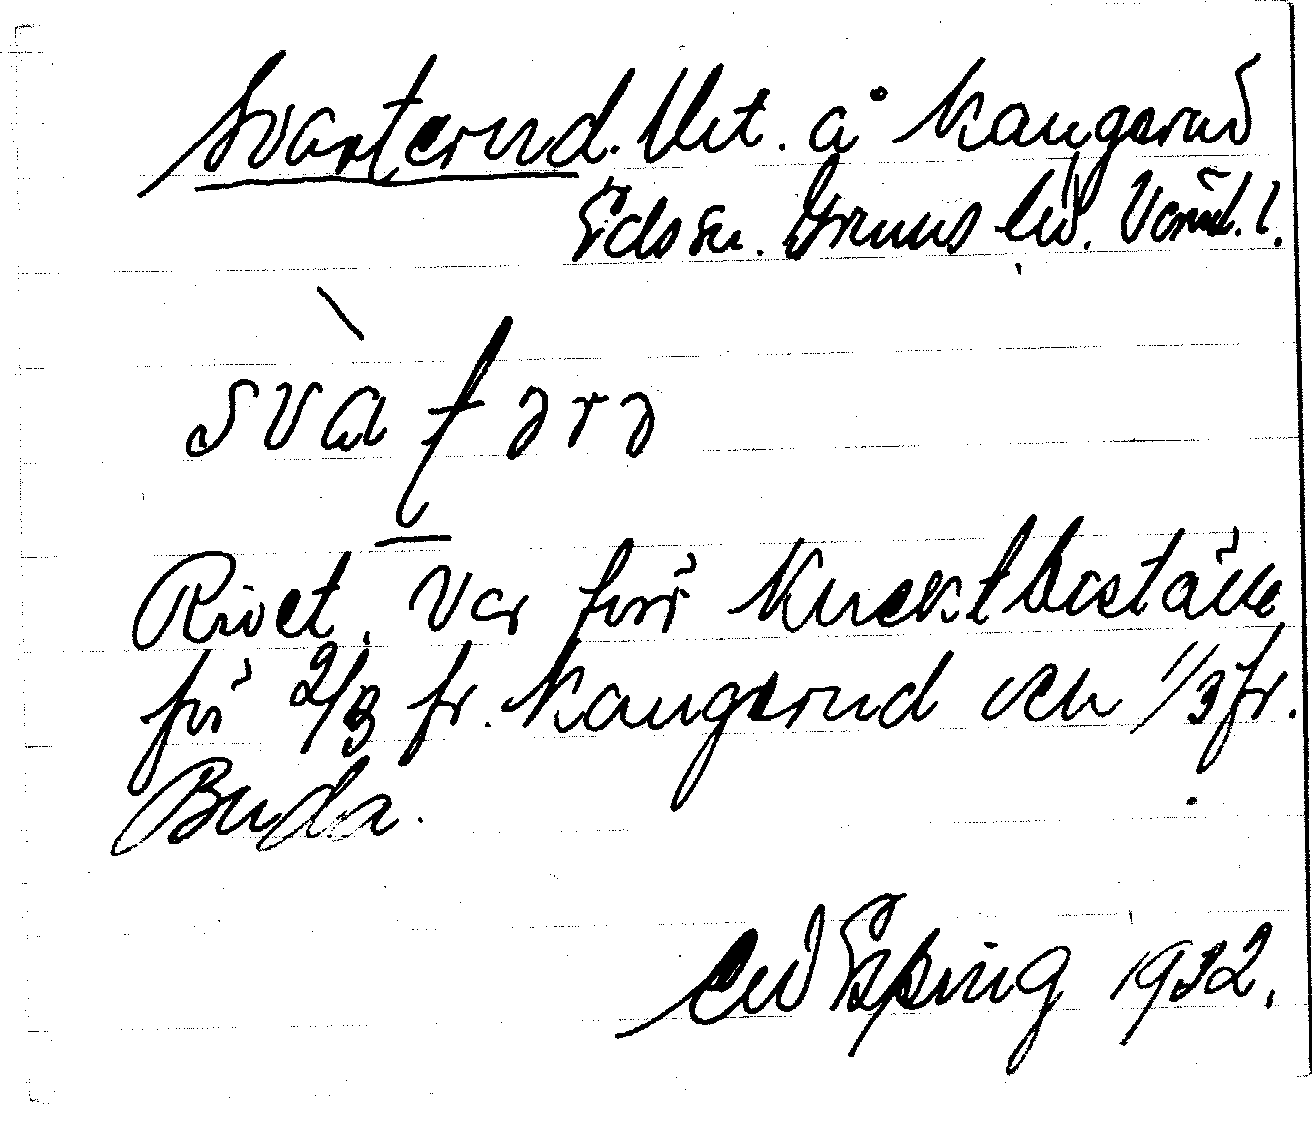 Svarterud. Utt. å Kangerud
Eds sn. Grums hd. Värml. l.
svàtərə
Rivet. Var förr Knektboställe
för 2/3 fr. Kangerud och 1/3 fr.
Buda.
Esping 1932.